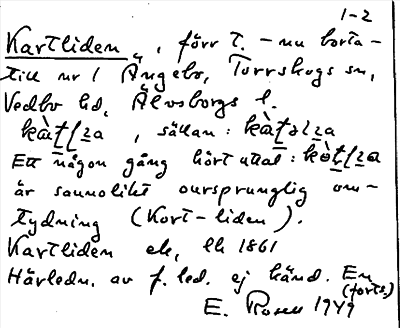 1-2
Kartliden, förr t. - nu borta -
till nr 1 Ängebo, Torrskogs sn,
Vedbo hd, Älvsborgs l.
, sällan:
Ett någon gång hört uttal:
är sannolikt oursprunglig om-
tydning (Kort-liden).
Kartliden ek, lk 1861
Härledn. av f. led. ej känd. En
(forts.)
E. Rosell 1949